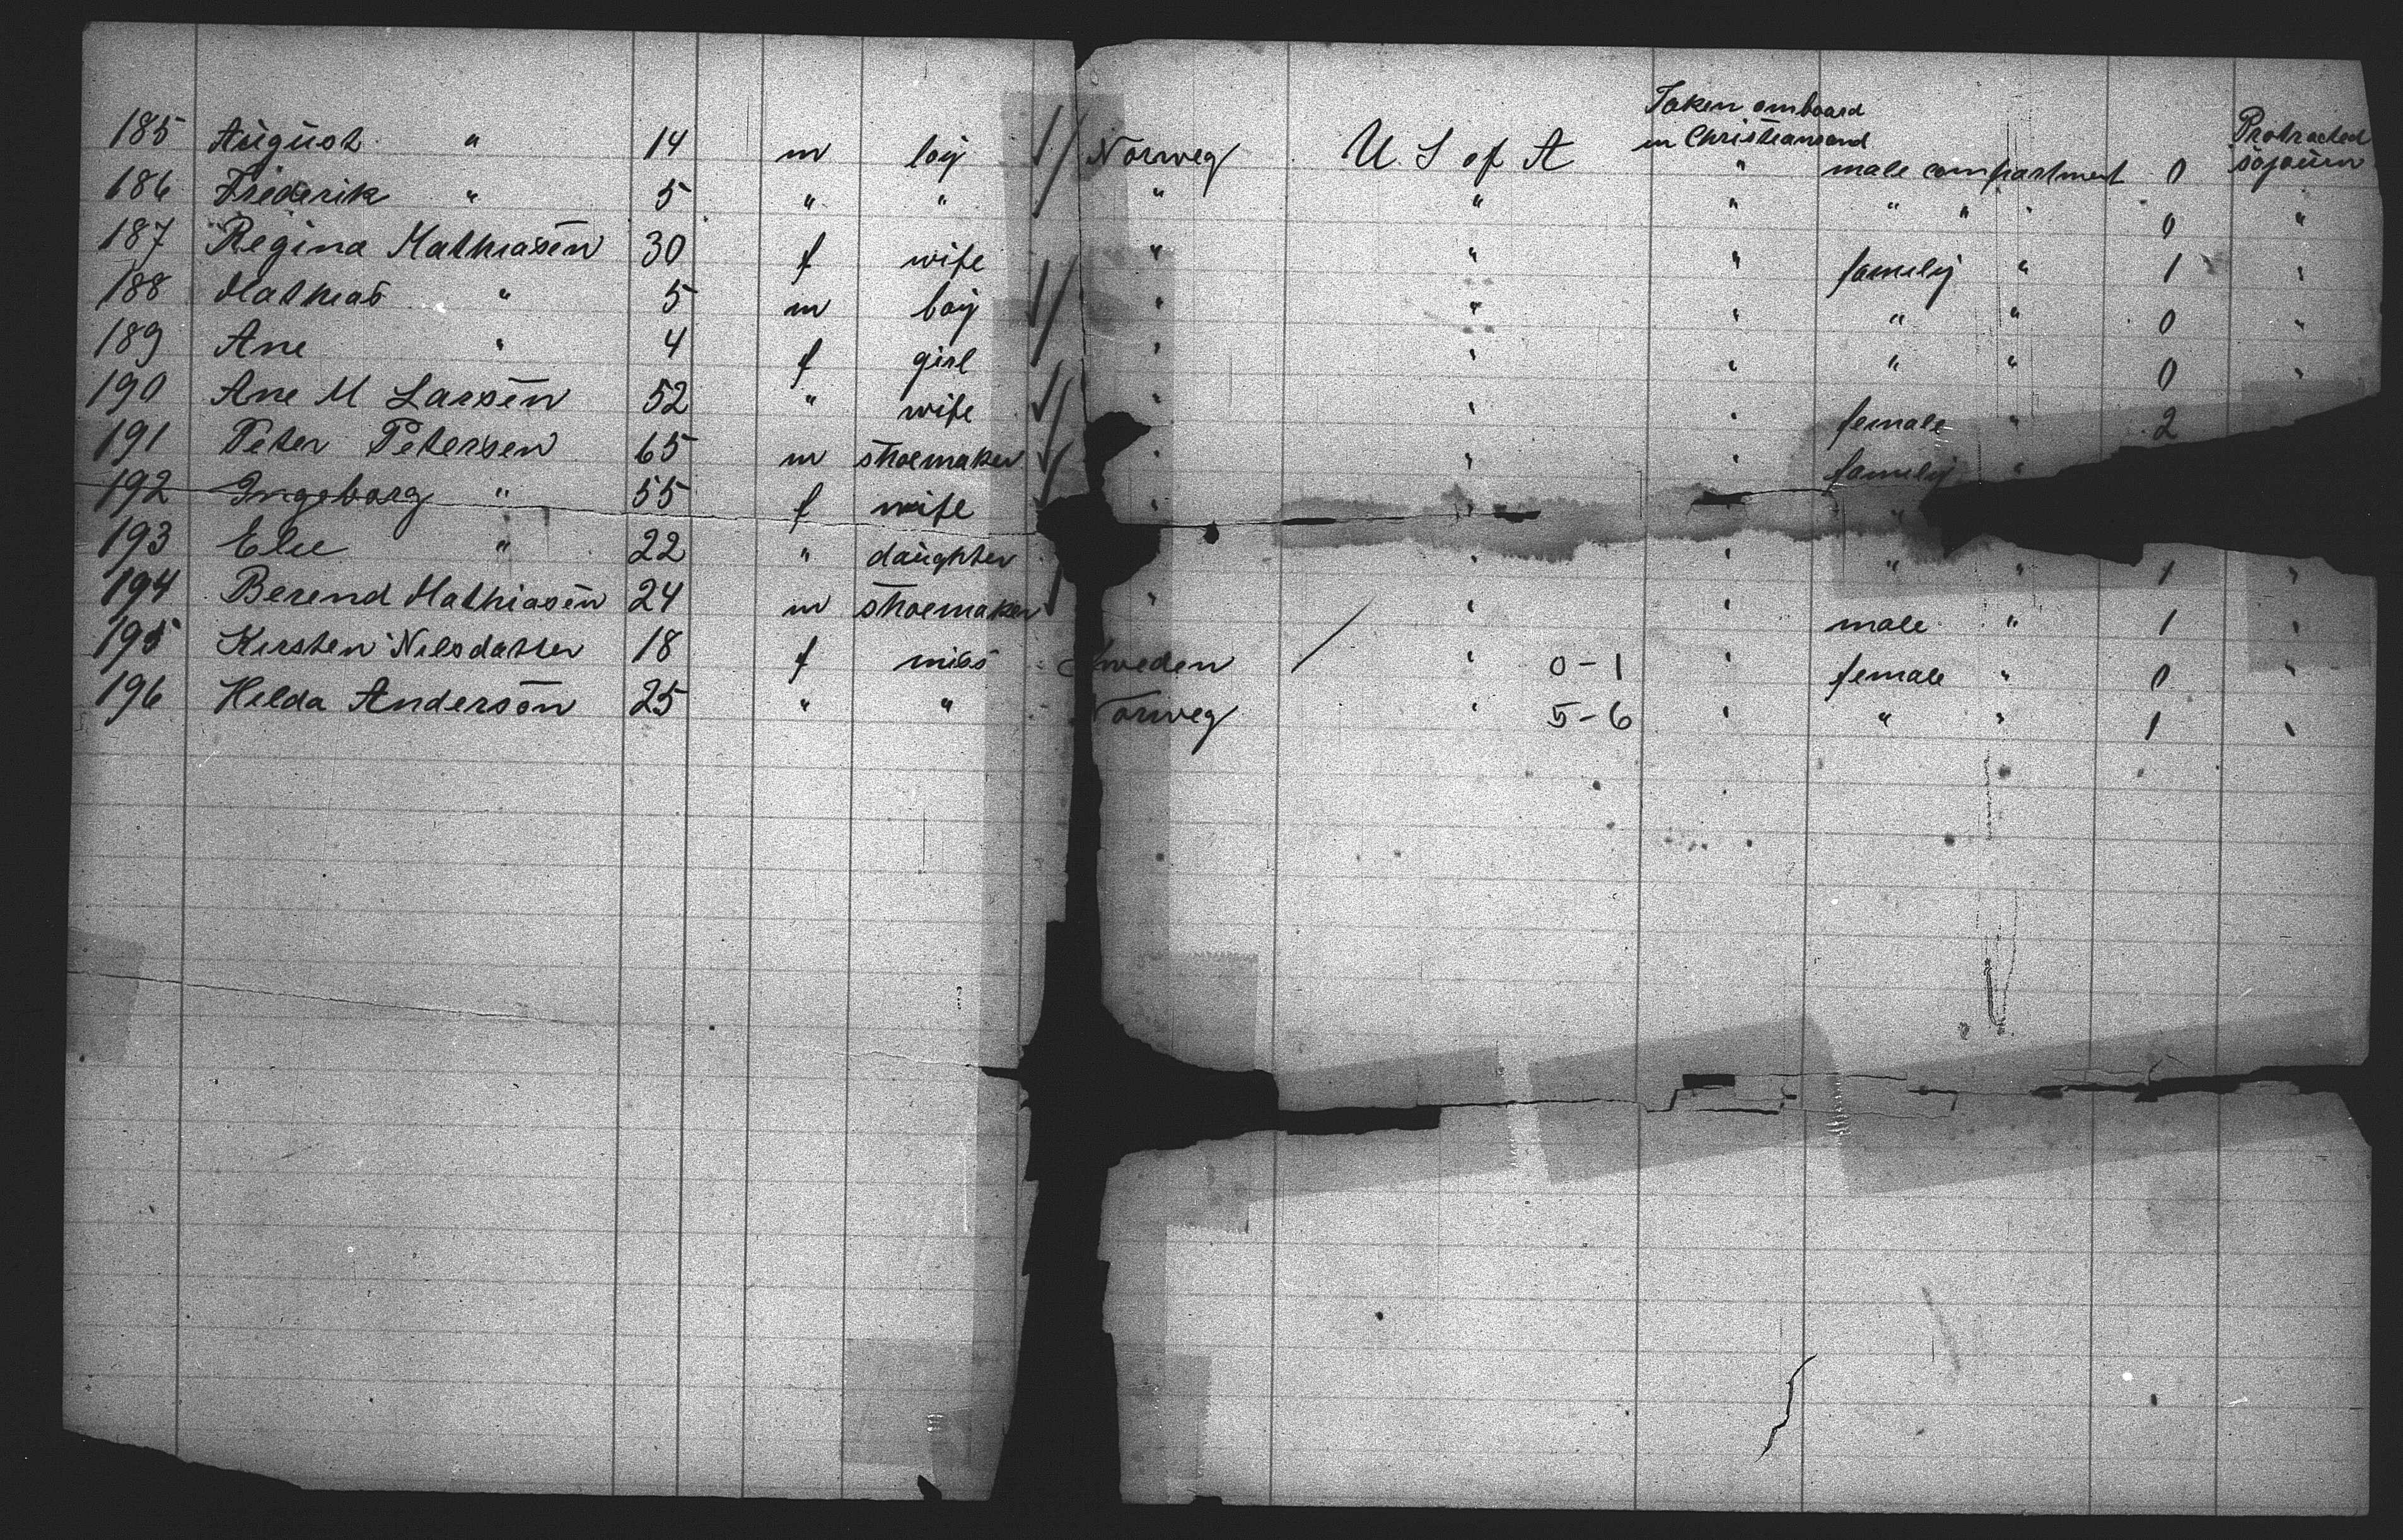 Taken omboard
in Christiansand
Protracted
sojourn
185 August " 14 m boy Norweg U. S of A " male compartment 0
186 Frederik " 5 " " " " " " " 0 "
187 Regina Mathiasen 30 f wife " " " family " 1 "
188 Mathias " 5 m boy " " " " " 0 "
189 Ane " 4 f girl " " " " " 0 "
190 Ane M Larsen 52 " wife " " " female " 2
191 Peter Petersen 65 m shoemaker " " " family "
192 Ingeborg " 55 f wife " " "
193 " 22 " daughter " " " " 1 "
194 Berend Mathiasen 24 m shoemaker " " " male " 1 "
195 Kirsten Nilsdatter 18 f miss Sweden " 0-1 " female " 0 "
196 Hilda Anderson 25 " " Norweg " 5-6 " " " 1 "